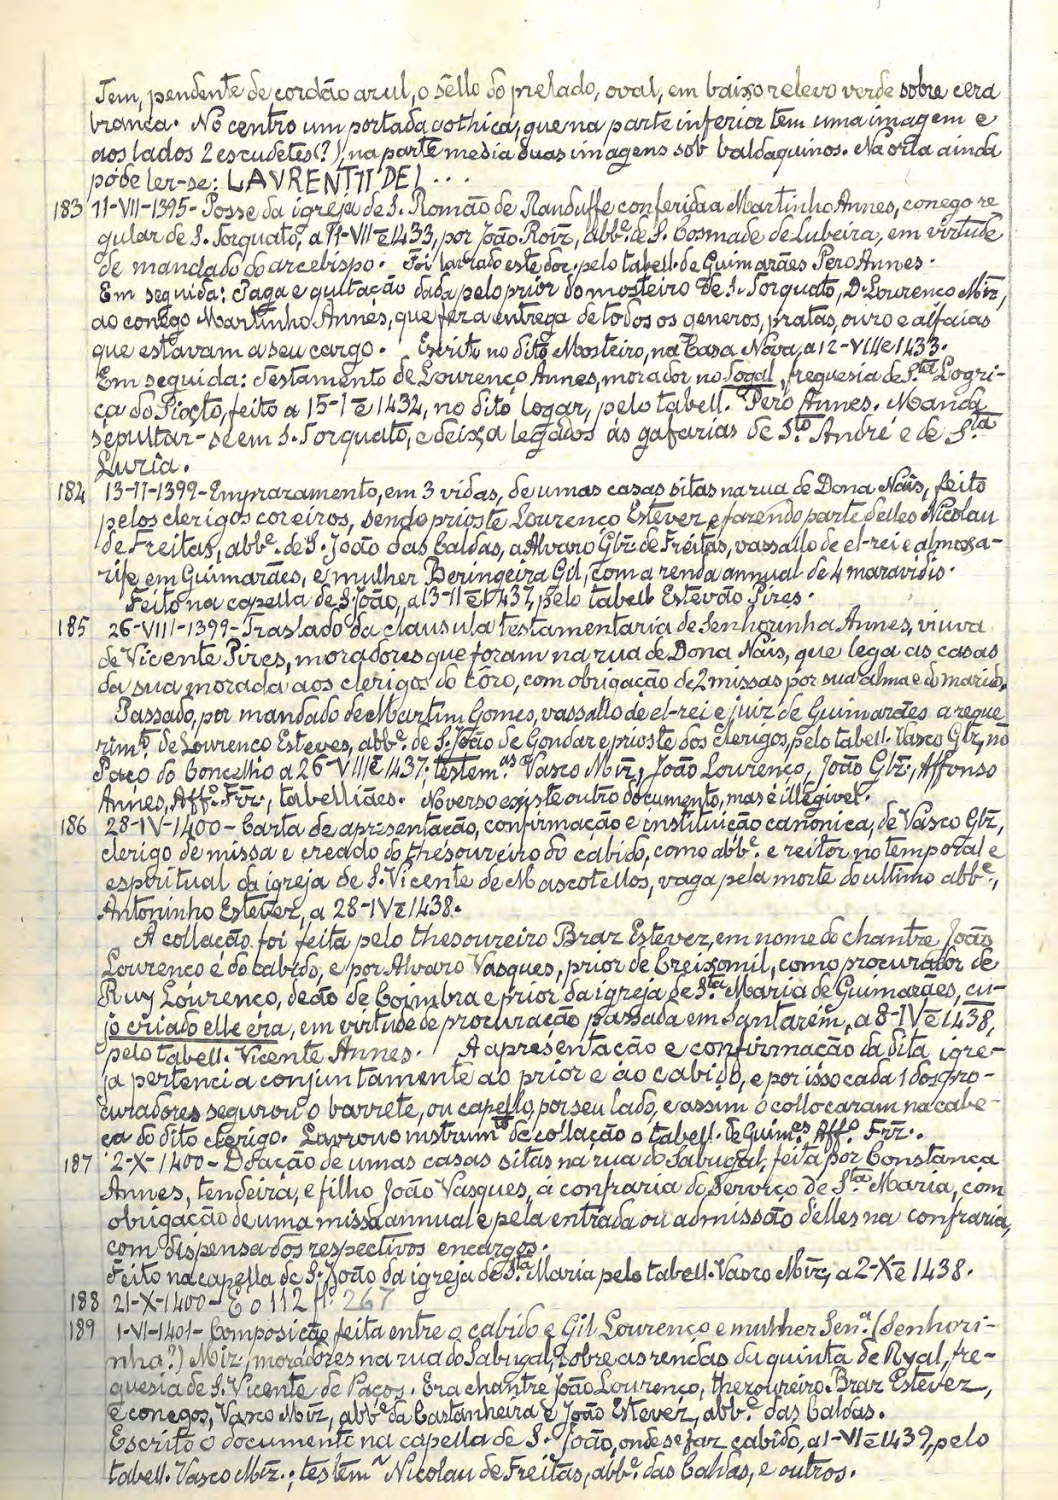 Tem, pendente de cordão azul, o sêllo do prelado, oval, em baixo relevo verde sobre cera
branca. No centro um portada gothica, que na parte inferior tem uma imagem e
aos lados 2 escudetes (?), na parte media duas imagens sob baldaquinos. Na orla ainda
póde ler-se: LAVRENTII DEI ...
183 11-VII-1395- Posse da igreja de S. Romão de Randuffe conferida a Martinho Annes, conego re
gular de S. Torquato, a 11-VII E 1433, por João Roiz, abb.e de S. Cosmade de Lubeira, em virtude
de mandado do arcebispo. Foi lavrado este doc. pelo tabell. de Guimarães Pero Annes.
Em seguida: Paga e quitação dada pelo prior do mosteiro de S. Torquato, D. Lourenço Miz,
ao conego Martinho Annes, que fez a entrega de todos os generos, pratas, ouro e alfaias
que estavam a seu cargo. Escrit no dito Mosteiro, na Casa Nova, a 12-VII E 1433.
Em seguida: Testamento de Lourenço Annes, morador no Togal, freguesia de S.ta Logri-
ça do Pioxto, feito a 15-I E 1432, no dito logar, pelo tabell. Pero Annes. Manda
sepultar-se em S. Torquato, e deixa legados ás gafarias de S.to André e de S.ta
Luzia.
184 13-II-1399- Emprazamento, em 3 vidas, de umas casas sitas na rua de Dona Nais, feito
pelos clerigos coreiros, sendo prioste Lourenço Estevez e fazendo parte delles Nicolau
de Freitas, abb.e de S. João das Caldas, a Alvaro Glz. de Freitas, vassallo de el-rei e almoxa-
rife em Guimarães, e mulher Beringeira Gil, com a renda annual de 4 maravidis.
Feito na capella de S. João, a 13-II E 1437, pelo tabell. Estevão Pires.
185 26-VIII-1399- Traslado da clausula testamentaria de Senhorinha Annes, viuva
de Vicente Pires, moradores que foram na rua de Dona Nais, que lega as casas
da sua morada aos clerigos do côro, com obrigação de 2 missas por sua alma e do marido.
Passado, por mandado de Martim Gomes, vassallo de el-rei e juiz de Guimarães a reque
rim.to de Lourenço Esteves, abb.e de S. João de Gondar e prioste dos clerigos, pelo tabell. Vasco Glz, no
Paço do Concelho a 26-VIII E 1437: testem.as Vasco Miz, João Lourenço, João Glz, Affonso
Annes, Aff.o Frz, tabelliães. No verso existe outro documento, mas é illegivel.
186 28-IV-1400- Carta de apresentação, confirmação e instituição canonica, de Vasco Glz,
clerigo de missa e creado do thesoureiro do cabido, como abb.e e reitor no temporal e
espiritual da igreja de S. Vicente de Mascotellos, vaga pela morte do ultimo abb.e,
Antoninho Estevez, a 28-IV E 1438.
A collação foi feita pelo thesoureiro Braz Estevez, em nome do chantre João
Lourenço e do cabido, e por Alvaro Vasques, prior de Creixomil, como procurador de
Ruy Lourenço, deão de Coimbra e prior da igreja de S.ta Maria de Guimarães, cu-
jo criado elle éra, em virtude de procuração passada em Santarém, a 8-IV E 1438,
pelo tabell. Vicente Annes. A apresentação e confirmação da dita igre-
ja pertencia conjuntamente ao prior e ao cabido, e por isso cada 1 dos pro-
curadores segurou o barrete, ou capello, por seu lado, e assim o collocaram na cabe-
ça do dito clerigo. Lavrou o instrum.to de collação o tabell. de Guim.es Aff.o Frz.
187 2-X-1400- Doação de umas casas sitas na rua do Sabugal, feita por Constança
Annes, tendeira, e filho João Vasques, á confraria do Serviço de S.ta Maria, com
obrigação de uma missa annual e pela entrada ou admissão d'elles na confraria,
com dispensa dos respectivos encargos.
Feito na capella de S. João da igreja de S.ta Maria pelo tabell. Vasco Miz, a 2-X E 1438.
188 21-X-1400- É o 112 fl. 267
189 1-VI-1401- Composição feita entre o cabido e Gil Lourenço e mulher Sen.a (Senhori-
nha?) Miz, moradores na rua do Sabugal, sobre as rendas da quinta de Ryal, fre-
guesia de S. Vicente de Paços. Era chantre João Lourenço, thezoureiro Braz Estevez,
e conegos, Vasco Miz, abb.e da Castanheira e João Estevez, abb.e das Caldas.
Escrito o documento na capella de S. João, onde se faz cabido, a 1-VI E 1439, pelo
tabell. Vasco Miz.; testem.a Nicolau de Freitas, abb.e das Caldas, e outros.